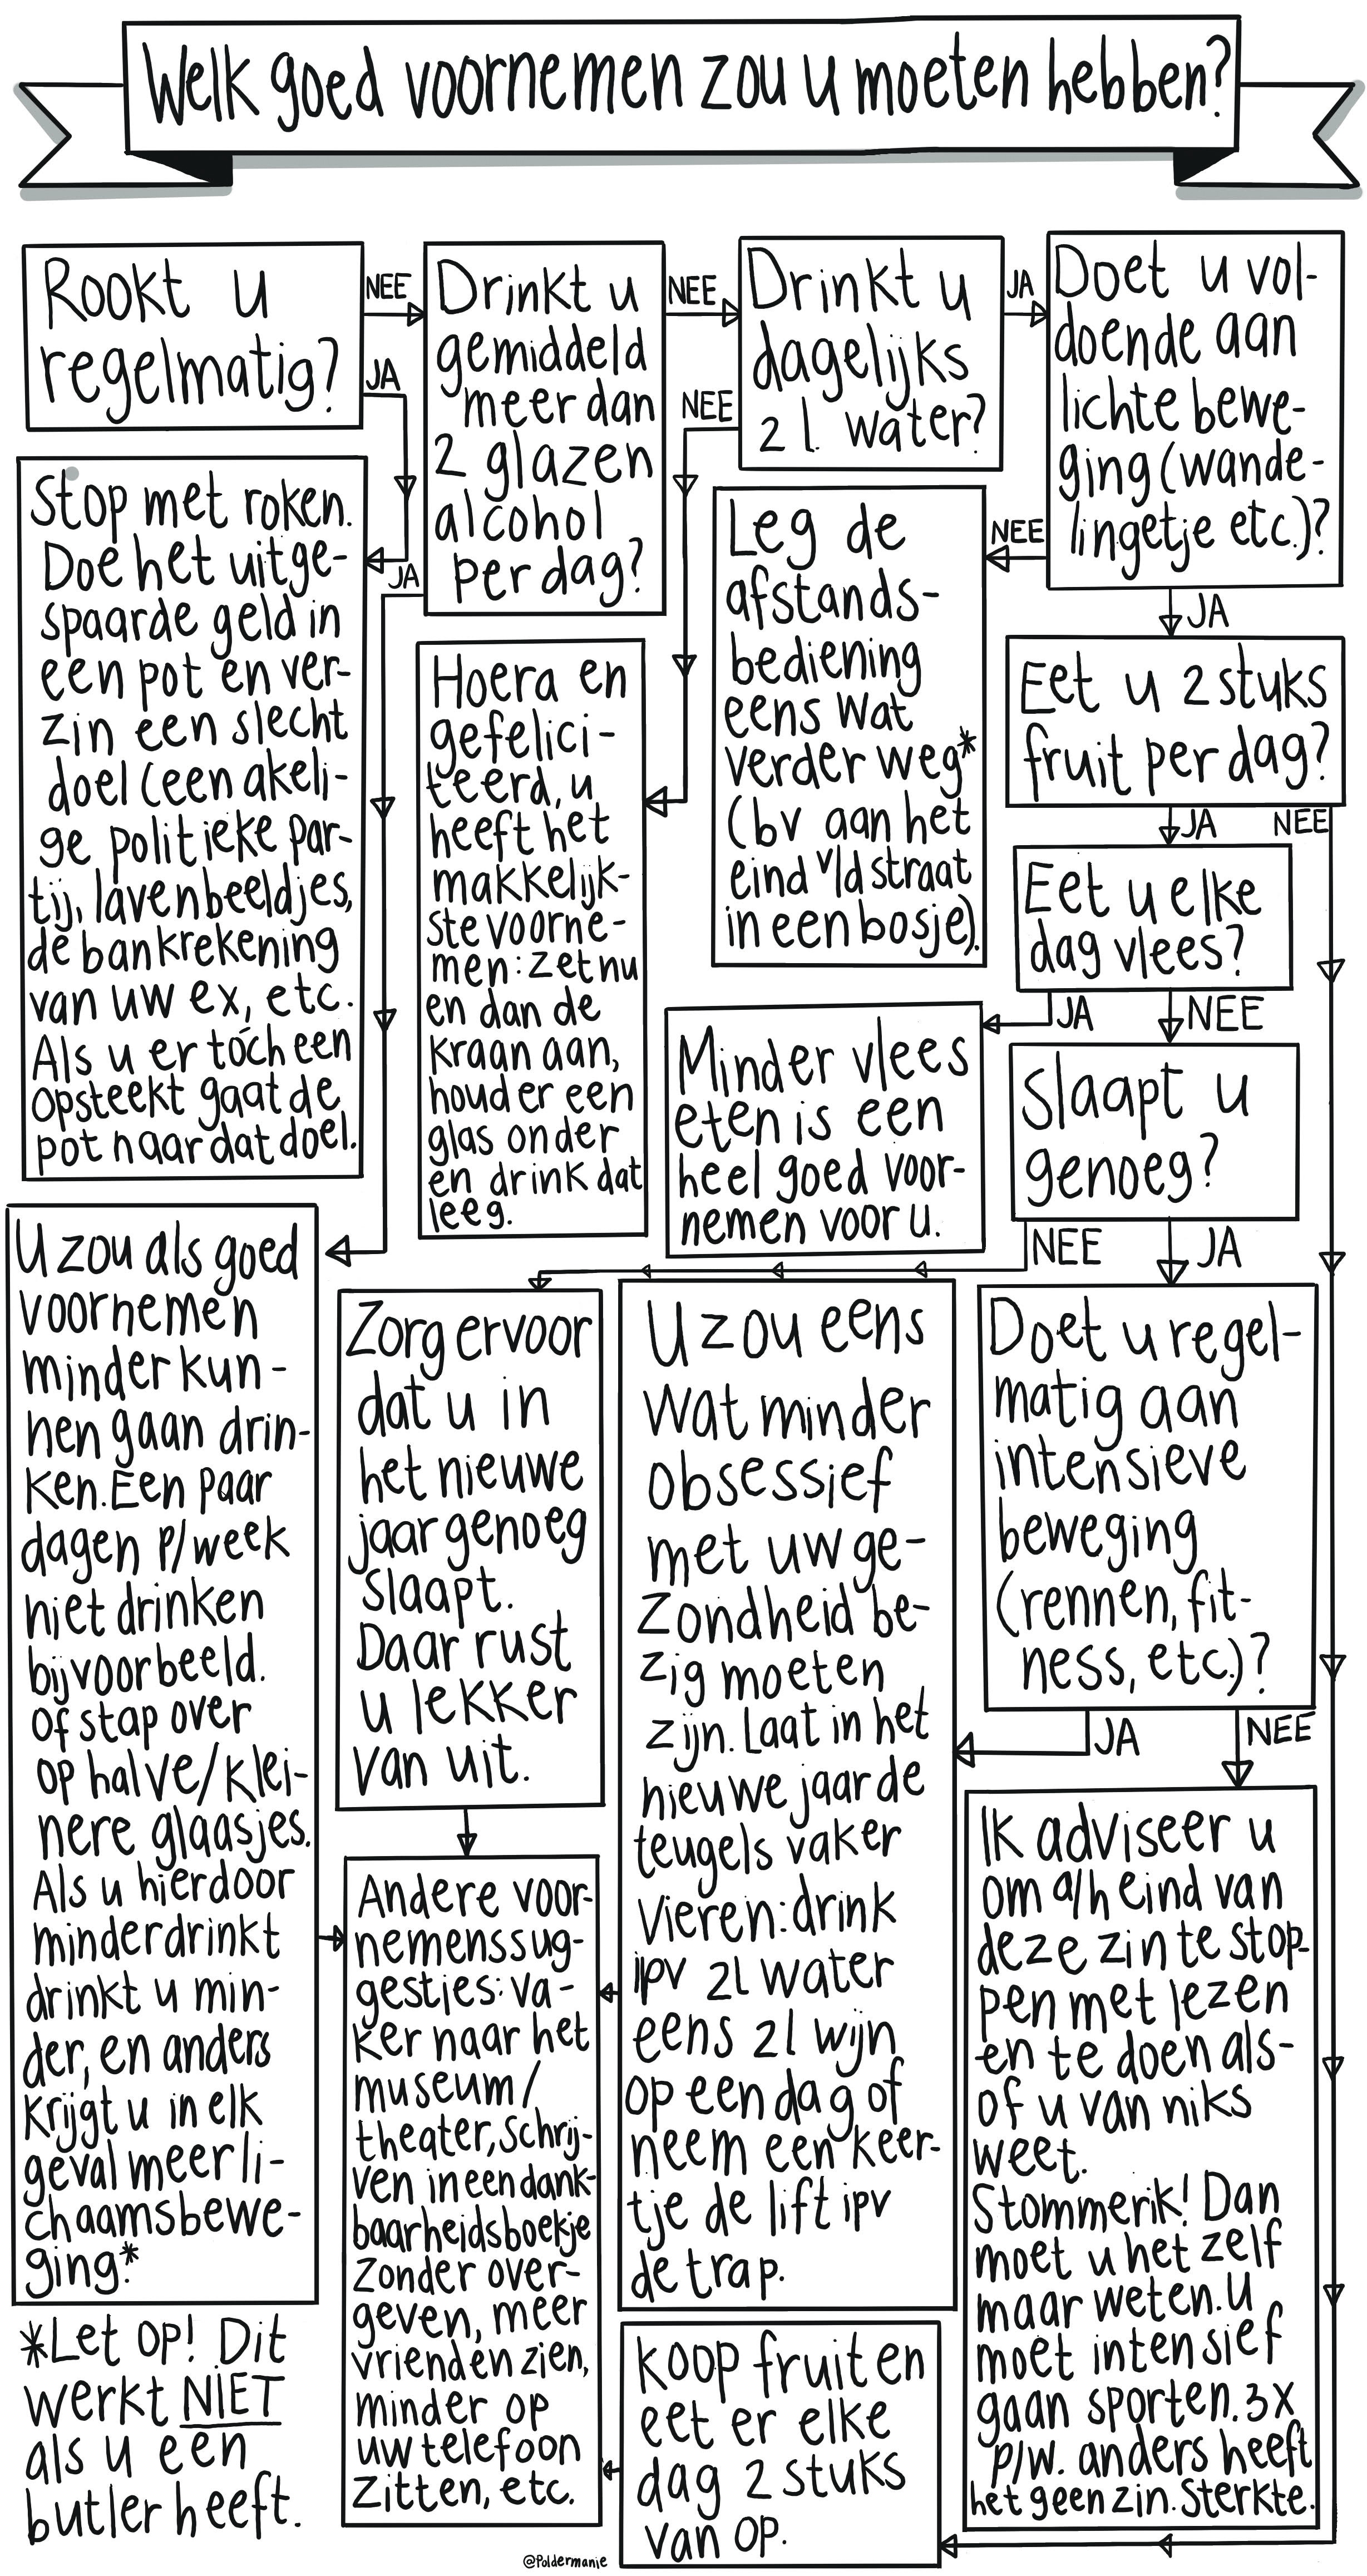 Welk goed voornemen zou u moeten hebben?
Rookt u
regelmatig?
NEE
JA
Drinkt u
gemiddeld
meer dan
2 glazen
alcohol
per dag?
NEE
JA
Drinkt u
dagelijks
2 l. water?
JA
NEE
Doet u vol-
doende aan
lichte bewe-
ging (wande-
lingetje etc.)?
NEE
JA
Stop met roken.
Doe het uitge-
spaarde geld in
een pot en ver-
zin een slecht
doel (een akeli-
ge politieke par-
tij, lavenbeeldjes,
de bankrekening
van uw ex, etc.
Als u er tóch een
opsteekt gaat de
pot naar dat doel.
Hoera en
gefelici-
teerd, u
heeft het
makkelijk-
ste voorne-
men: zet nu
en dan de
kraan aan,
houd er een
glas onder
en drink dat
leeg.
Leg de
afstands-
bediening
eens wat
verder weg*
(bv aan het
eind v/d straat
in een bosje).
Eet u 2 stuks
fruit per dag?
JA
NEE
Eet u elke
dag vlees?
JA
NEE
Minder vlees
eten is een
heel goed voor-
nemen voor u.
Slaapt u
genoeg?
NEE
JA
U zou als goed
voornemen
minder kun-
nen gaan drin-
ken. Een paar
dagen p/week
niet drinken
bijvoorbeeld.
Of stap over
op halve/klei-
nere glaasjes.
Als u hierdoor
minder drinkt
drinkt u min-
der, en anders
krijgt u in elk
geval meer li-
chaamsbewe-
ging.*
Zorg ervoor
dat u in
het nieuwe
jaar genoeg
slaapt.
Daar rust
u lekker
van uit.
U zou eens
wat minder
obsessief
met uw ge-
zondheid be-
zig moeten
zijn. Laat in het
nieuwe jaar de
teugels vaker
vieren: drink
ipv 2l water
eens 2l wijn
op een dag of
neem een keer-
tje de lift ipv
de trap.
Doet u regel-
matig aan
intensieve
beweging
(rennen, fit-
ness, etc.)?
JA
NEE
Ik adviseer u
om a/h eind van
deze zin te stop-
pen met lezen
en te doen als-
of u van niks
weet.
Stommerik! Dan
moet u het zelf
maar weten. U
moet intensief
gaan sporten. 3x
p/w. anders heeft
het geen zin. Sterkte.
Andere voor-
nemenssug-
gesties: va-
ker naar het
museum/
theater, schrij-
ven in een dank-
baarheidsboekje
zonder over-
geven, meer
vrienden zien,
minder op
uw telefoon
zitten, etc.
Koop fruit en
eet er elke
dag 2 stuks
van op.
*Let op! Dit
werkt NIET
als u een
butler heeft.
@Poldermanie